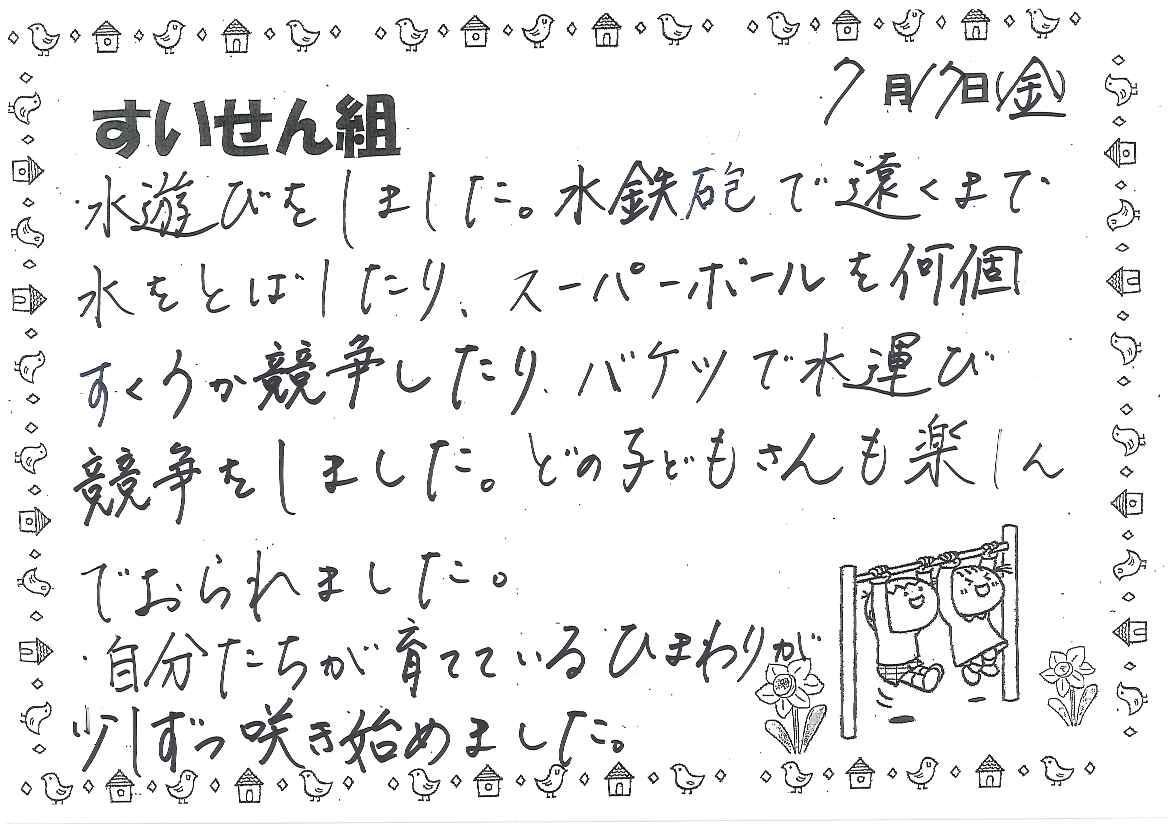 7月17日(金)
すいせん組
・水遊びをしました。水鉄砲で遠くまで
水をとばしたり、スーパーボールを何個
すくうか競争したり、バケツで水運び
競争をしました。どの子どもさんも楽しん
でおられました。
・自分たちが育てているひまわりが
少しずつ咲き始めました。